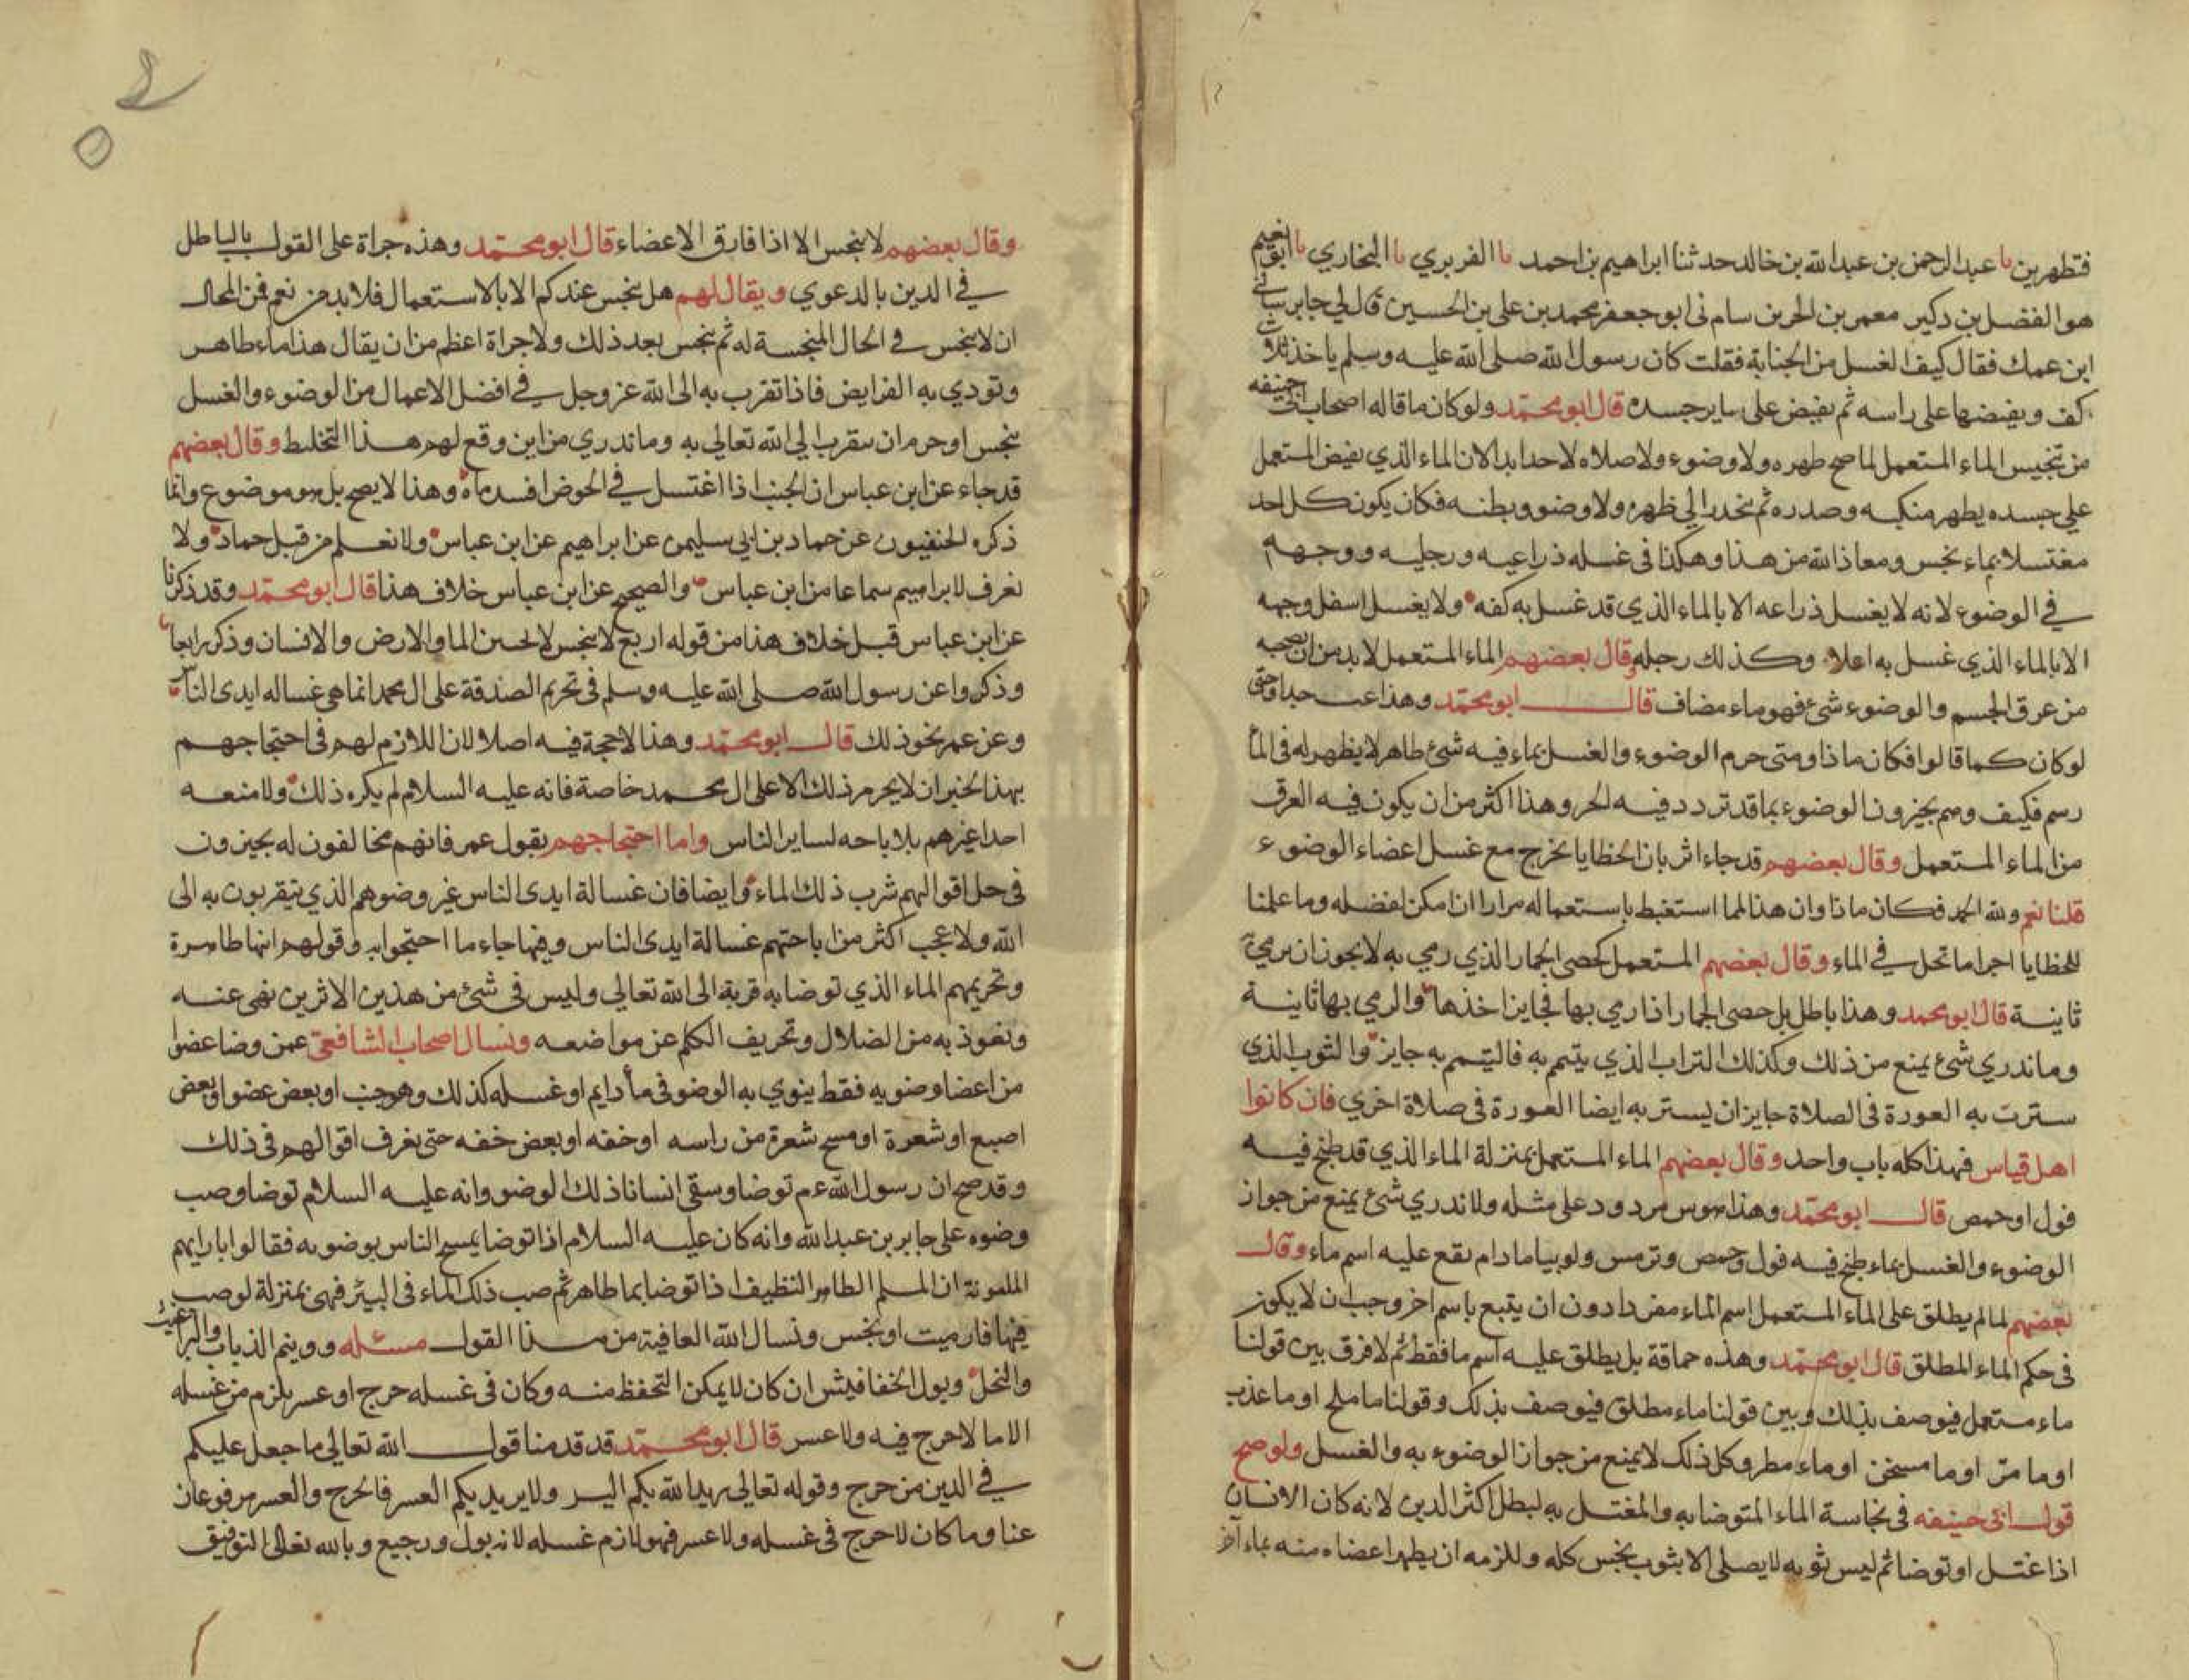 فتطهرين نا عبد الرحمن بن عبد الله بن خالد حدثنا ابراهيم بن احمد نا الفربري نا البخاري نا ابو نعيم
هو الفضل بن دكير معمر بن الحر بن سام نى ابو جعفر محمد بن على بن الحسين قال لي جابر
ابن عمك فقال كيف الغسل من الجنابة فقلت كان رسول الله صلى الله عليه وسلم ياخذ ثلاث
كف ويفيضها على راسه ثم يفيض على ساير جسده قال ابو محمد ولو كان ما قاله اصحاب ابى حنيفه
من تنجيس الماء المستعمل لما صح طهره ولا وضوء ولا صلاه لاحد ابدا لان الماء الذي يفيض المستعمل
على جسده يطهر منكبه وصدره ثم ينحدر الي ظهره ولا وضوو بطنه فكان يكون كل احد
مغتسلا بماء نجس ومعاذ الله من هذا وهكذا فى غسله ذراعيه ورجليه ووجهه
في الوضوء لانه لا يغسل ذراعه الا بالماء الذي قد غسل به كفه ولا يغسل اسفل وجهه
الا بالماء الذي غسل به اعلاه وكذلك رجله وقال بعضهم الماء المستعمل لا بد من ان يصحبه
من عرق الجسم والوضوء شئ فهو ماء مضاف قال ابو محمد وهذا غث جدا وحتى
لو كان كما قالوا فكان ماذا ومتى حرم الوضوء والغسل بماء فيه شئ طاهر لا يظهر له فى الماء
رسم فكيف وهم يجيزون الوضوء بما قد تردد فيه الحر وهذا اكثر من ان يكون فيه العرق
من الماء المستعمل وقال بعضهم قد جاء اثر بان الخطايا تخرج مع غسل اعضاء الوضوء
قلنا نعم ولله الحمد فكان ماذا وان هذا لمما استغبط باستعماله مرارا ان امكن لفضله وما علمنا
للخطايا اجراما تحل في الماء وقال بعضهم المستعمل كحصى الجمار الذي رمي به لا يجوز ان يرمي به
ثانية قال ابو محمد وهذا باطل بل حصى الجمار اذا رمي بها فجايز اخذها والرمي بها ثانية
وما ندري شئ يمنع من ذلك وكذلك التراب الذي يتيمم به فالتيمم به جايز والثوب الذي
سترت به العورة فى الصلاة جايز ان يستر به ايضا العورة فى صلاة اخري فان كانوا
اهل قياس فهذا كله باب واحد وقال بعضهم الماء المستعمل بمنزلة الماء الذي قد طبخ فيه
فول او حمص قال ابو محمد وهذا هوس مردود على مثله ولا ندري شئ يمنع من جواز
الوضوء والغسل بماء طبخ فيه فول وحمص وترمس ولوبيا ما دام يقع عليه اسم ماء وقال
بعضهم لما لم يطلق على الماء المستعمل اسم الماء مفردا دون ان يتبع باسم اخر وجب ان لا يكون
فى حكم الماء المطلق قال ابو محمد وهذه حماقة بل يطلق عليه اسم ما فقط ثم لا فرق بين قولنا
ماء مستعمل فيوصف بذلك وبين قولنا ماء مطلق فيوصف بذلك وقولنا ما ملح او ما عذب
او ما مر او ما مسخن او ماء مطر وكل ذلك لا يمنع من جواز الوضوء به والغسل ولو صح
قول ابى حنيفه فى نجاسة الماء المتوضا به والمغتسل به لبطل اكثر الدين لانه كان الانسان
اذا غتسل او توضا ثم لبس ثوبه لا يصلى الا بثوب نجس كله وللزمه ان يطهر اعضاه منه بماء آخر
وقال بعضهم لا ينجس الا اذا فارق الاعضاء قال ابو محمد وهذه جراة على القول بالباطل
في الدين بالدعوي ويقال لهم هل ينجس عندكم الا بالاستعمال فلا بد من نعم فمن المحال
ان لا ينجس في الحال المنجسة له ثم ينجس بعد ذلك ولا جراة اعظم من ان يقال هذا ماء طاهر
وتودي به الفرايض فاذا تقرب به الى الله عز وجل في افضل الاعمال من الوضوء والغسل
ينجس او حرم ان يتقرب الي الله تعالي به وما ندري من اين وقع لهم هذا التخليط وقال بعضهم
قد جاء عن ابن عباس ان الجنب اذا اغتسل في الحوض افسد ماه وهذا لا يصح بل هو موضوع وانما
ذكره الحنفيون عن حماد بن ابي سليمن عن ابراهيم عن ابن عباس ولا نعلم من قبل حماد ولا
نعرف لابراهيم سماعا من ابن عباس والصحيح عن ابن عباس خلاف هذا قال ابو محمد وقد ذكرنا
عن ابن عباس قبل خلاف هذا من قوله اربع لا ينجس الماو الارض والانسان وذكر رابعا
وذكروا عن رسول الله صلى الله عليه وسلم فى تحريم الصدقة على ال محمد انما هي غساله ايدى الناس
وعن عمر نحو ذلك قال ابو محمد وهذا لا حجة فيه اصلا لان اللازم لهم فى احتجاجهم
بهذا الخبر ان لا يحرم ذلك الا على ال محمد خاصة فانه عليه السلام لم يكره ذلك ولا منعه
احدا غيرهم بل اباحه لساير الناس واما احتجاجهم بقول عمر فانهم مخالفون له يجيزون
فى حل اقوالهم شرب ذلك الماء وايضا فان غسالة ايدى الناس غير وضوهم الذي يتقربون به الى
الله ولا عجب اكثر من اباحتهم غسالة ايدى الناس وفيها جاء ما احتجوا به وقولهم انها طاهرة
وتحريمهم الماء الذي توضا به قربة الى الله تعالي وليس فى شئ من هذين الاثرين نهى عنه
ونعوذ به من الضلال وتحريف الكلم عن مواضعه ونسال اصحاب الشافعى عمن وضا عضوا
من اعضا وضويه فقط ينوي به الوضو فى ما دايم او غسله كذلك وهو جنب او بعض عضو او بعض
اصبع او شعرة او مسح شعرة من راسه او خفه او بعض خفه حتى نعرف اقوالهم فى ذلك
وقد صح ان رسول الله عم توضا وسقى انسانا ذلك الوضو وانه عليه السلام توضا وصب
وضوه على جابر بن عبد الله وانه كان عليه السلام اذا توضا يمسح الناس بوضوبه فقالوا بارايهم
الملعونة ان المسلم الطاهر النظيف اذا توضا بما طاهر ثم صب ذلك الماء فى البير فهى بمنزلة لو صب
فيها فار ميت او نجس ونسال الله العافية من هذا القول مسئله وونيم الذباب والبراغيث
والنحل وبول الخفافيش ان كان لا يمكن التحفظ منه وكان فى غسله حرج او عسر يلزم من غسله
الا ما لا حرج فيه ولا عسر قال ابو محمد قد قدمنا قول الله تعالي ما جعل عليكم
في الدين من حرج وقوله تعالى يريد الله بكم اليسر ولا يريد بكم العسر فالحرج والعسر مرفوعان
عنا وما كان لا حرج فى غسله ولا عسر فهو لازم غسله لانه بول ورجيع وبالله تعالى التوفيق